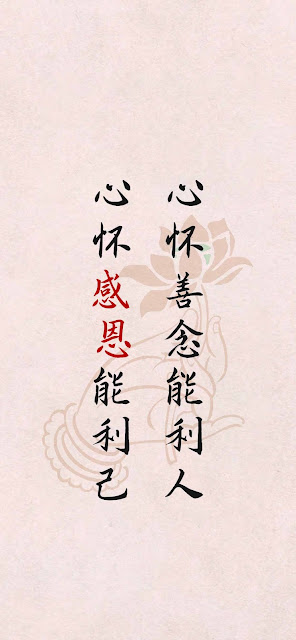 心怀善念能利人
心怀感恩能利己